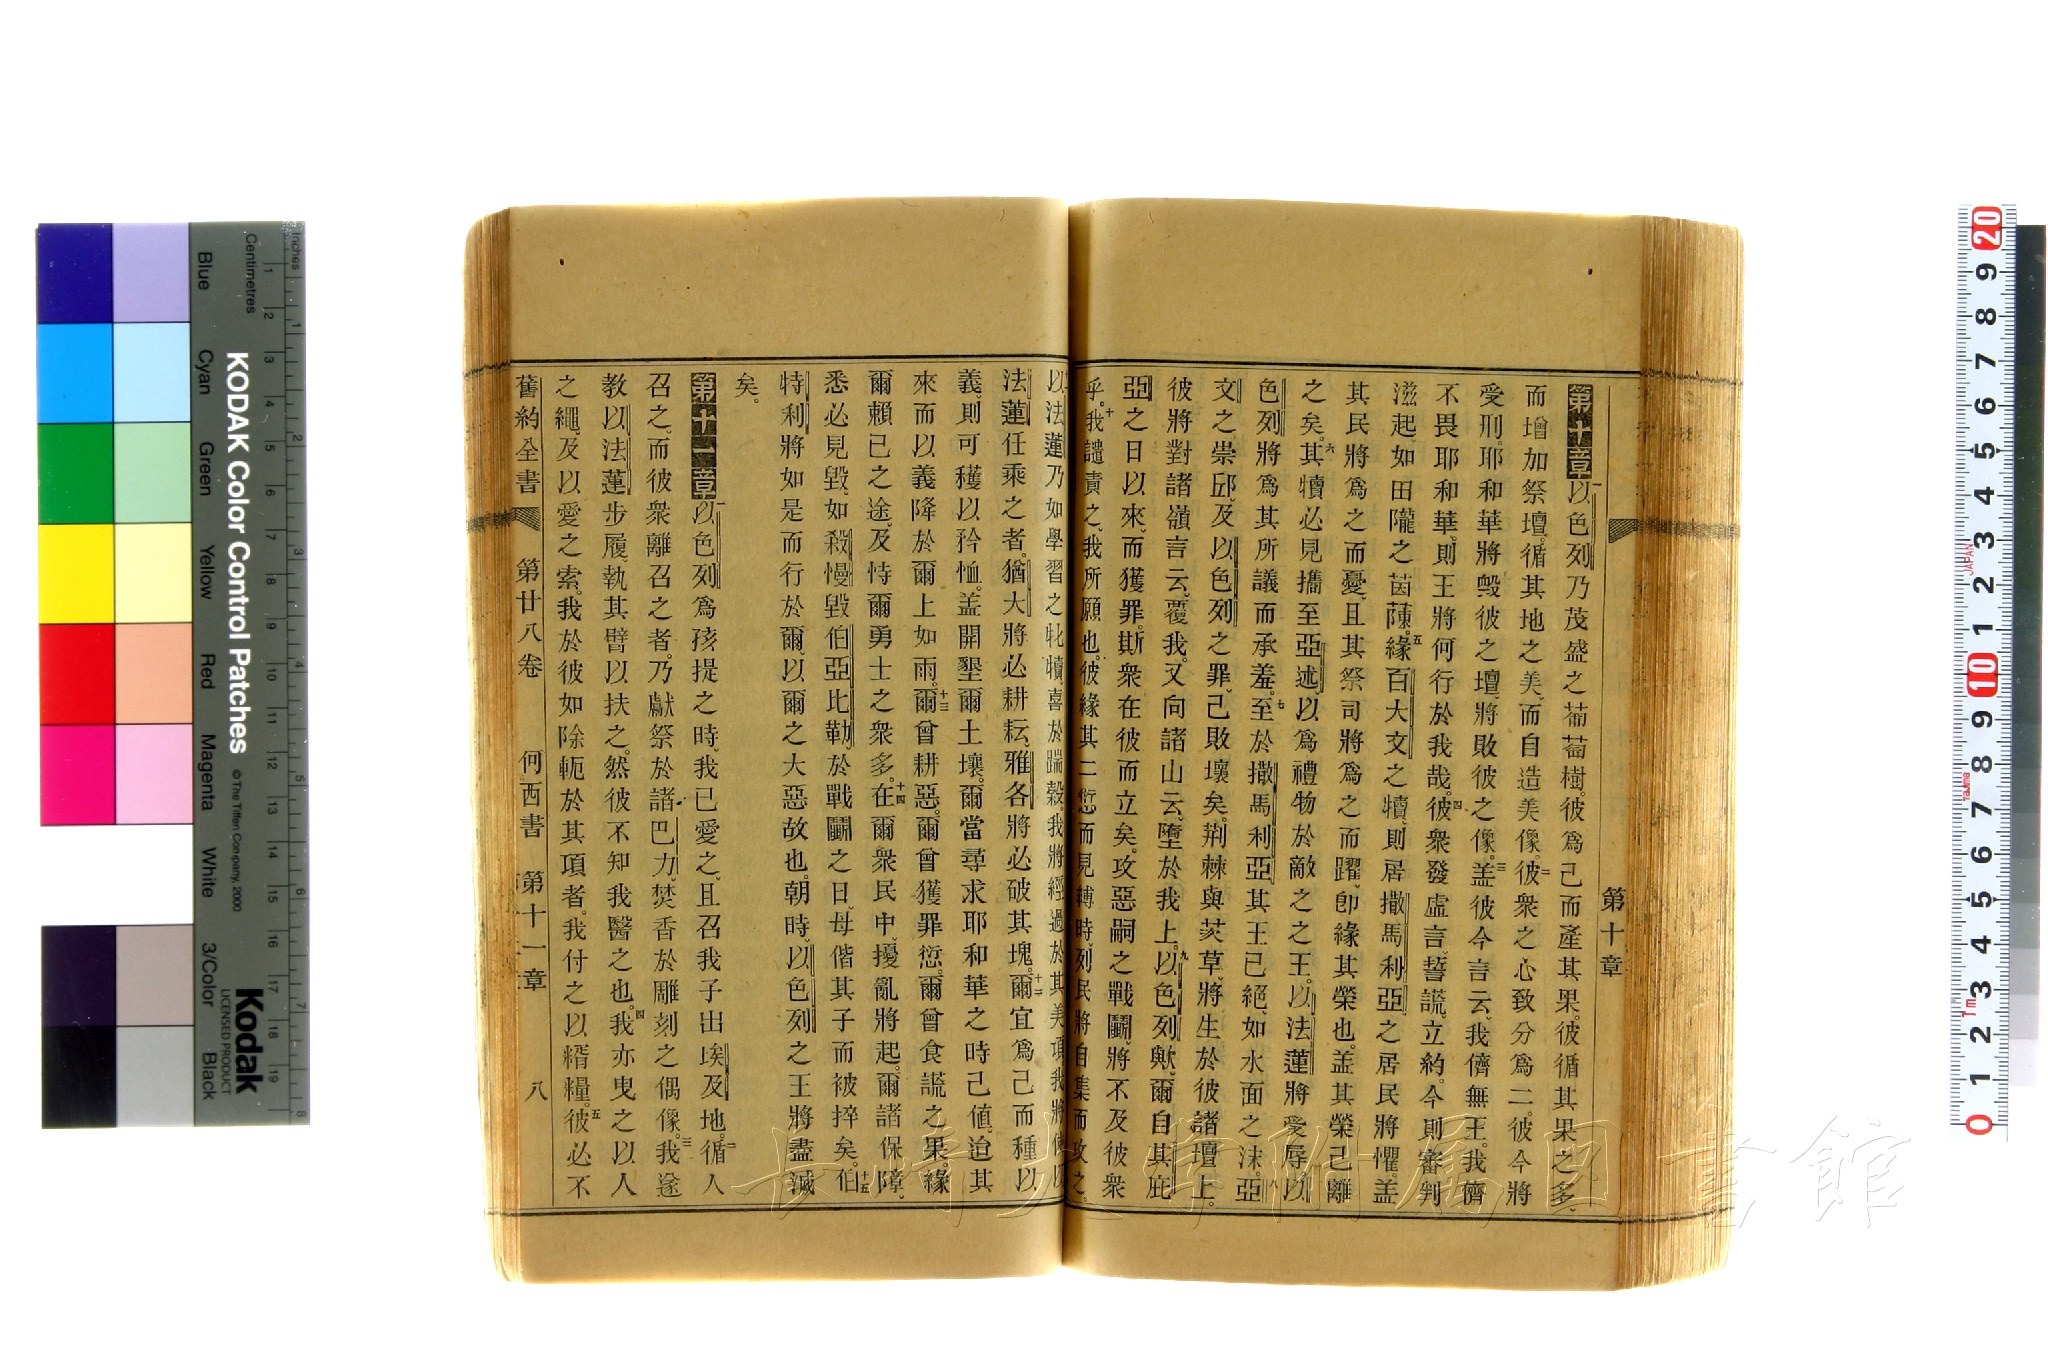 第十章
第十章一以色列乃茂盛之葡萄樹。彼爲己而產其果。彼循其果之多、
而增加祭壇。循其地之美、而自造美像。二彼衆之心致分爲二。彼今將
受刑。耶和華將毀彼之壇、將敗彼之像。三盖彼今言云、我儕無王。我儕
不畏耶和華。則王將何行於我哉。四彼衆發虛言、誓謊。立約。今則審判
滋起、如田隴之茵蔯。五緣百大文之犢、則居撒馬利亞之居民將懼。盖
其民將爲之而憂、且其祭司將爲之而躍、卽緣其榮也。盖其榮己離
之矣。六其犢必見攜至亞述、以爲禮物於敵之之王。以法蓮將受辱、以
色列將爲其所議而承羞。七至於撒馬利亞其王已絕、如水面之沫。八亞
文之崇邱、及以色列之罪、己敗壞矣。荆棘與芡草、將生於彼諸壇上。
彼將對諸嶺言云、覆我。又向諸山云、墮於我上。九以色列歟、爾自其庇
亞之日以來、而獲罪。斯衆在彼而立矣。攻惡嗣之戰鬭、將不及彼衆
乎。十我譴責之、我所願也。彼緣其二愆而見縛時、列民將自集而攻之。
以法蓮乃如學習之牝犢、喜於踹穀。我將經過於其美項我將使以
法蓮任乘之者。猶大將必耕耘、雅各將必破其塊。十二爾宜爲己而種以
義、則可穫以矜恤。盖開墾爾土壤。爾當尋求耶和華之時己値、迨其
來而以義降於爾上如雨。十三爾曾耕惡。爾曾獲罪愆。爾曾食謊之果。緣
爾賴己之途、及恃爾勇士之衆多。十四在爾衆民中、擾亂將起。爾諸保障、
悉必見毀、如殺慢毀伯亞比勒、於戰鬭之日、母偕其子而被摔矣。十五伯
特利將如是而行於爾、以爾之大惡故也。朝時、以色列之王將盡滅
矣。
第十一章一以色列爲孩提之時、我已愛之、且召我子出埃及地。二循人
召之、而彼衆離召之者。乃獻祭於諸巴力、焚香於雕刻之偶像。三我遂
教以法蓮步履、執其臂以扶之。然彼不知我醫之也。四我亦曳之以人
之繩、及以愛之索。我於彼如除軛於其項者。我付之以糈糧。五彼必不
舊約全書 第廿八卷 何西書 第十一章 八
長崎大学附属図書館
KODAK Color Control Patches
Kodak
LICENSED PRODUCT
© The Tiffen Company, 2000
Inches
Centimetres
Blue Cyan Green Yellow Red Magenta White 3/Color Black